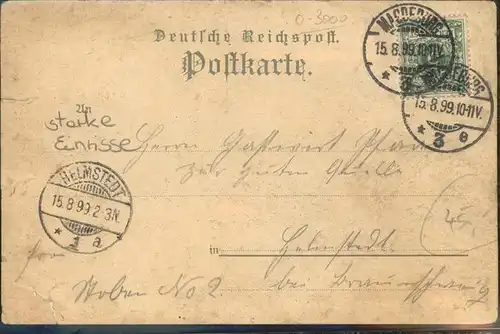 0-3000
Deutsche Reichspost.
Postkarte.
MAGDEBURG
15.8.99.10-11V.
* 3 e
15.8.99.10-11V.
* 3 e
An
starke
Einrisse
Herrn Gastwirt
zur guten Quelle
HELMSTEDT
15.8.99.2-3N.
* 1 a
45,-
in Helmstedt
bei Braunschweig
No 2